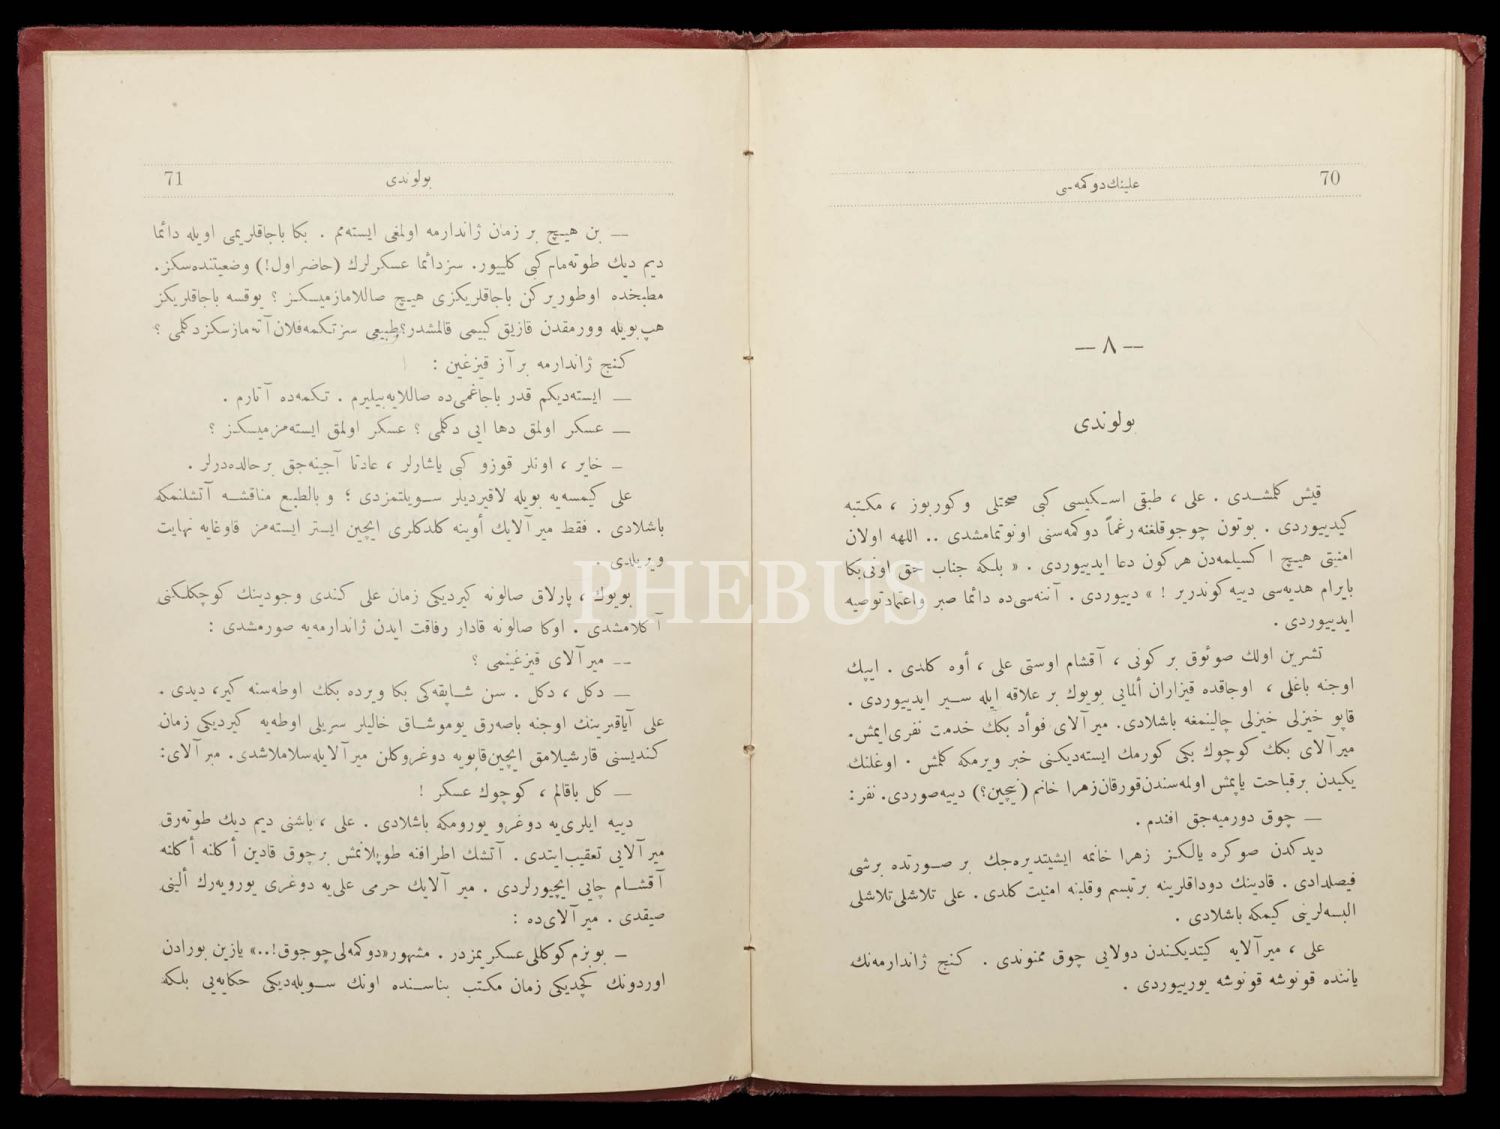 70
علینك دوكمه‌سی
— ٨ —
بولوندی
قیش كلمشدی . علی ، طبقی اسكیسی كبی صحتلی وكوربوز ، مكتبه
كیدییوردی . بوتون چوجوقلغنه رغماً دوكمه‌سنی اونوتمامشدی .. اللهه اولان
امنیتی هیچ اكسیلمه‌دن هركون دعا ایدییوردی . « بلكه جناب حق اونی بكا
بایرام هدیه‌سی دییه كوندریر ! » دییوردی . آننه‌سی‌ده دائما صبر واعتماد توصیه
ایدییوردی .
تشرین اولك صوئوق بر كونی ، آقشام اوستی علی ، أوه كلدی . ایپك
اوجنه باغلی ، اوجاقده قیزاران ألمایی بویوك بر علاقه ایله سیر ایدییوردی .
قاپو خیزلی خیزلی چالینمغه باشلادی. میر آلای فوأد بكك خدمت نفری‌ایمش.
میر آلای بكك كوچوك بكی كورمك ایسته‌دیكنی خبر ویرمكه كلمش . اوغلنك
یكیدن برقباحت یاپمش اولمه‌سندن‌قورقان‌زهرا خانم (نیچین؟) دییه‌صوردی. نفر:
— چوق دورمیه‌جق افندم .
دیدكدن صوكره یالكز زهرا خانمه ایشیتدیره‌جك بر صورتده برشی
فیصلدادی . قادینك دوداقلرینه برتبسم وقلبنه امنیت كلدی . علی تلاشلی تلاشلی
البسه‌لرینی كیمكه باشلادی .
علی ، میر آلایه كیتدیكندن دولایی چوق ممنوندی . كنج ژاندارمه‌نك
یاننده قونوشه قونوشه یورییوردی .
71
بولوندی
— بن هیچ بر زمان ژاندارمه اولمغی ایسته‌مم . بكا باجاقلریمی اویله دائما
دیم دیك طوته‌مام كبی كلییور. سزدائما عسكرلرك (حاضر اول!) وضعیتنده‌سكز.
مطبخده اوطوریركن باجاقلریكزی هیچ صاللامازمیسكز ؟ یوقسه باجاقلریكز
هپ‌بویله وورمقدن قازیق كبیمی قالمشدر؟طبیعی سزتكمه‌فلان آته‌مازسكزدكلمی ؟
كنج ژاندارمه برآز قیزغین :
— ایسته‌دیكم قدر باجاغمی‌ده صاللایه‌بیلیرم . تكمه‌ده آتارم .
— عسكر اولمق دها ایی دكلمی ؟ عسكر اولمق ایسته‌مزمیسكز ؟
— خایر ، اونلر قوزو كبی یاشارلر ، عادتا آجینه‌جق برحالده‌درلر .
علی كیمسه‌یه بویله لاقیردیلر سویلتمزدی ؛ و بالطبع مناقشه آتشلنمكه
باشلادی . فقط میر آلایك أوینه كلدكلری ایچین ایستر ایسته‌مز قاوغایه نهایت
ویریلدی .
بویوك ، پارلاق صالونه كیردیكی زمان علی كندی وجودینك كوچكلكنی
آكلامشدی . اوكا صالونه قادار رفاقت ایدن ژاندارمه‌یه صورمشدی :
— میر آلای قیزغینمی ؟
— دكل ، دكل . سن شاپقه‌كی بكا ویرده بكك اوطه‌سنه كیر، دیدی .
علی آیاقلرینك اوجنه باصه‌رق یوموشاق خالیلر سریلی اوطه‌یه كیردیكی زمان
كندیسنی قارشیلامق ایچین‌قاپویه دوغروكلن میر آلایله‌سلاملاشدی. میر آلای:
— كل باقالم ، كوچوك عسكر !
دییه ایلری‌یه دوغرو یورومكه باشلادی . علی ، باشنی دیم دیك طوته‌رق
میر آلایی تعقیب‌ایتدی . آتشك اطرافنه طوپلانمش برچوق قادین أكلنه أكلنه
آقشام چایی ایچیورلردی . میر آلایك حرمی علی‌یه دوغری یورویه‌رك ألینی
صیقدی . میر آلای‌ده :
— بو بزم كوكللی عسكریمزدر . مشهور«دوكمه‌لی چوجوق!..» یازین بورادن
اوردونك كچدیكی زمان مكتب بناسنده اونك سویله‌دیكی حكایه‌یی بلكه
PHEBUS